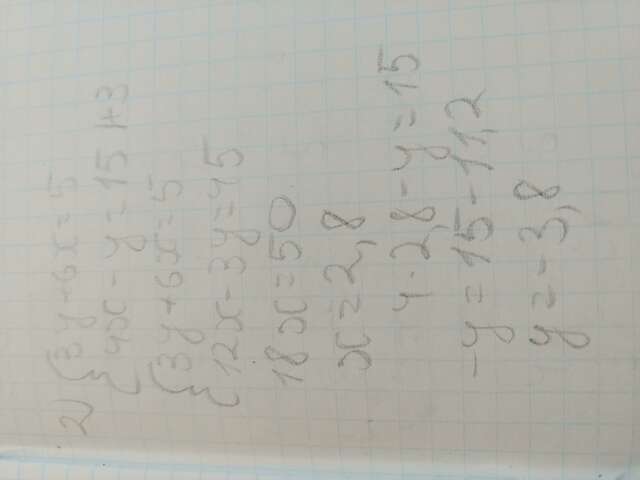 2) { 3y + 6x = 5
4x - y = 15 | + 3
{ 3y + 6x = 5
12x - 3y = 45
18x = 50
x = 2,8
4 · 2,8 - y = 15
-y = 15 - 11,2
y = -3,8